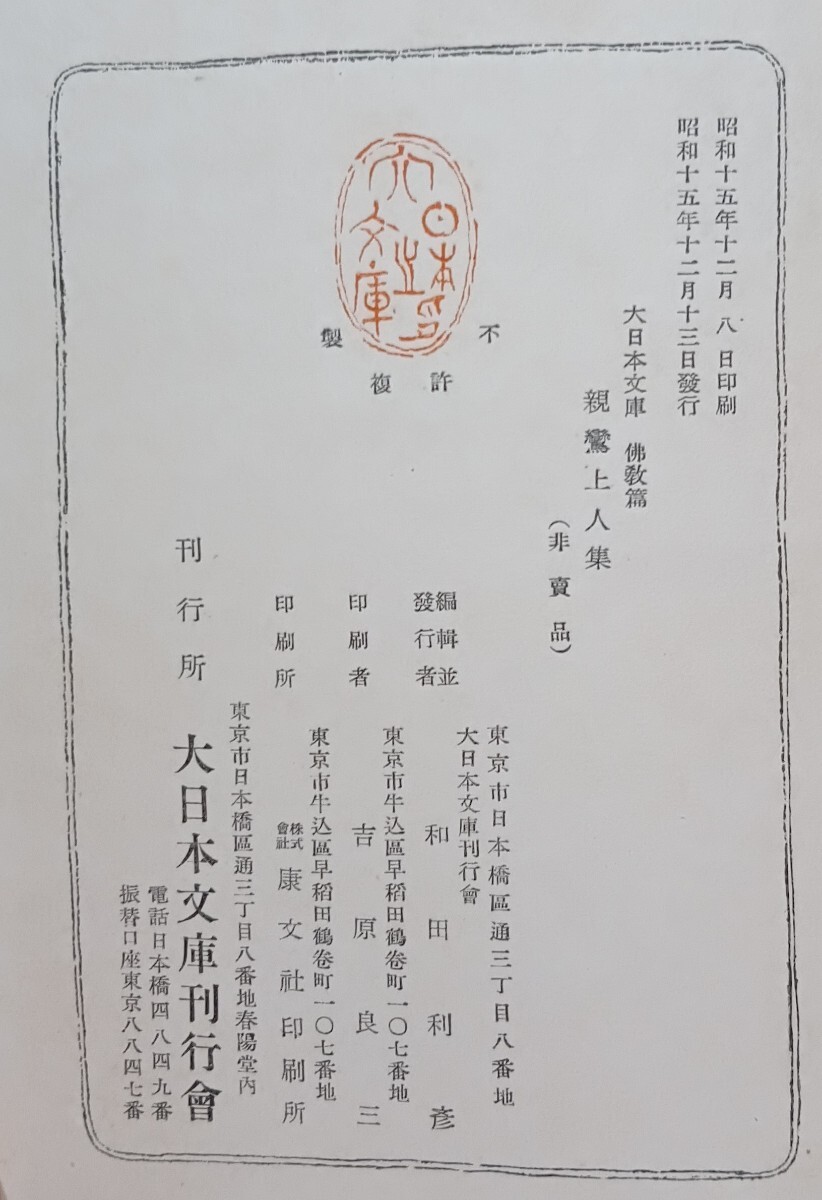 昭和十五年十二月八日印刷
昭和十五年十二月十三日發行
大日本文庫 佛敎篇
親鸞上人集
(非賣品)
不許複製
大日本文庫之印
東京市日本橋區通三丁目八番地
大日本文庫刊行會
編輯並發行者 和田利彥
東京市牛込區早稻田鶴卷町一〇七番地
印刷者 吉原良三
東京市牛込區早稻田鶴卷町一〇七番地
印刷所 株式會社 康文社印刷所
東京市日本橋區通三丁目八番地春陽堂內
刊行所 大日本文庫刊行會
電話日本橋四八四九番
振替口座東京八八四七番